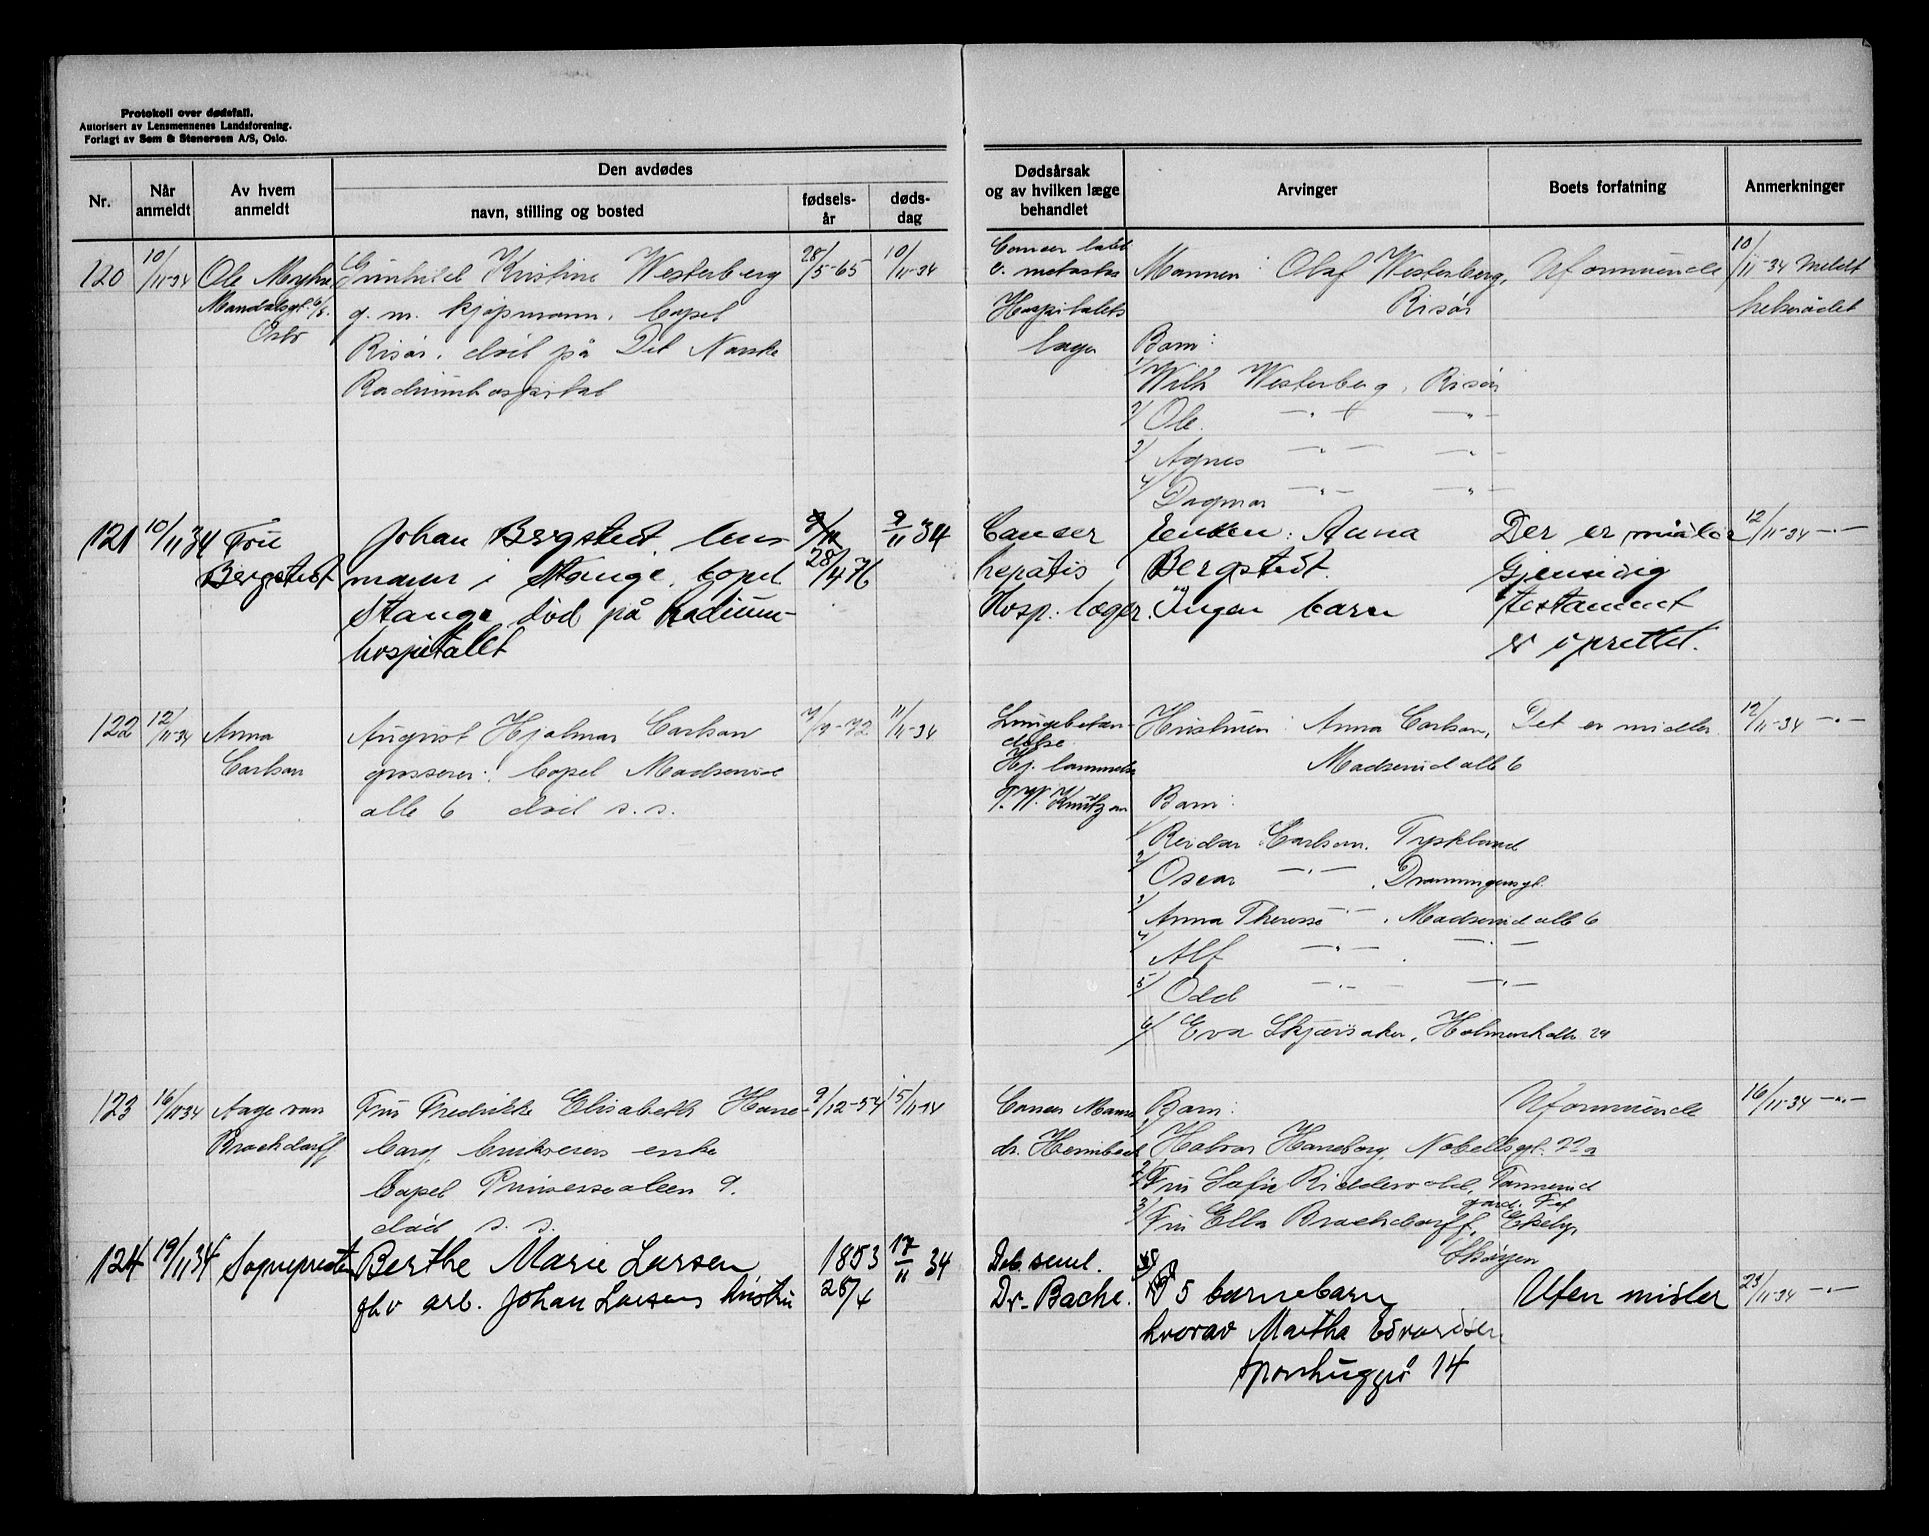 Protokoll over dødsfall.
Autorisert av Lensmennenes Landsforening.
Forlagt av Sem & Stenersen A/S, Oslo.
Nr.
Når anmeldt
Av hvem anmeldt
Den avdødes
navn, stilling og bosted
fødsels-år
døds-dag
Dødsårsak og av hvilken læge behandlet
Arvinger
Boets forfatning
Anmerkninger
120
10/11-34
Ole Myhre
Mandalsgt. 6/8.
Oslo
Gunhild Kristine Westerberg
g. m. kjøpmann. bopel
Risør. død på Det Norske
Radiumhospital
28/5-65
10/11-34
Cancer
c. metastas
Hospitalets
læge
Mannen: Olaf Westerberg,
Risør
Barn:
1/ Wilh Westerberg, Risør
2/ Ole. —"— —"—
3/ Agnes —"— —"—
4/ Dagmar —"— —"—
Uformuende
10/11-34 Meldt
helserådet
121
10/11 34
Frü
Bergstedt
Johan Bergstedt. lens
mann i Stange. bopel
Stange, død på Radium-
hospitalet
28/4 76
9/11 34
Cancer
hepatis
Hosp. læger.
Enken: Anna
Bergstedt.
Ingen barn
Der er midler
Gjensidig
testament
er oprettet.
12/11-34 —"—
122
12/11-34
Anna
Carlson
August Hjalmar Carlson
grosserer. bopel Madserud
alle 6 død s. s.
7/9-72
11/11-34
Lungebetæn-
delse
Hj. lammelse
Knutzon
Hustruen: Anna Carlson,
Madserud alle 6
Barn:
1/ Reidar Carlson. Tyskland
2/ Oscar —"— . Drammensgt.
3/ Anna Therese —"— . Madserud alle 6
4/ Alf —"— —"—
5/ Odd —"— —"—
6/ Eva Skjærsaker, Holmenkolln. 29
Det er midler
12/11-34 —"—
123
16/11 34
Aage van
Brockdorff
Fru Fredrikke Elisabeth Hane-
borg, brukseiers enke
Bopel Prinsessealleen 9.
død s. s.
9/12-54
15/11-34
Cancer Mamae
dr. Heimbeck
Barn:
1/ Halvor Haneborg, Nobelsgt. 22a
2/ Fru Sofie Riddervold, Tannerud
gård. Fet
3/ Fru Ella Brockdorff, Ekely,
Skøyen
Uformuende
16/11-34 —"—
124
19/11 34
Sognepresten
Berthe Marie Larsen
fhv arb. Johan Larsens hustru
1853
28/4
17/11 34
Deb. senil.
Dr. Bache.
5 barnebarn
hvorav Martha Edvardsen
14
Uten midler
23/11-34 —"—